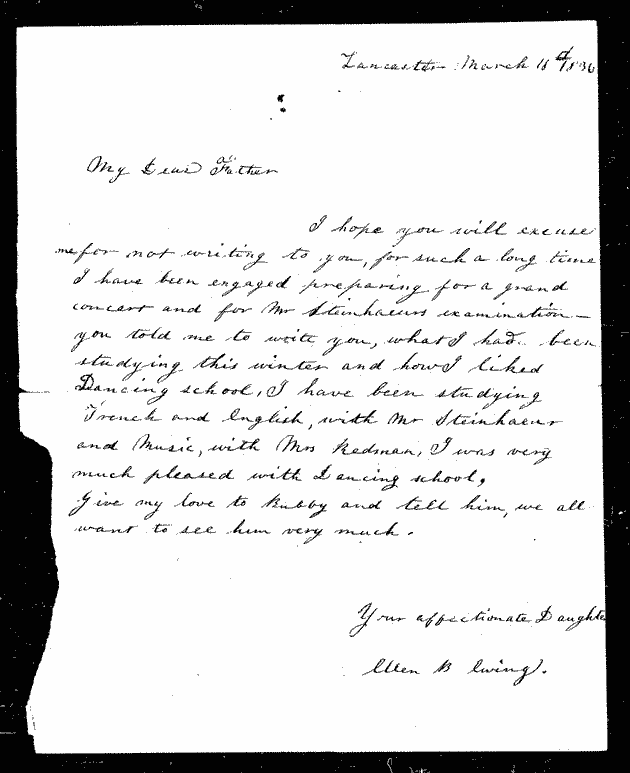 Lancaster March 18th 1836
My Dear Father
I hope you will excuse
me for not writing to you, for such a long time
I have been engaged preparing for a grand
concert and for Mr Steinhaeurs examination –
you told me to write you, what I had been
studying this winter and how I liked
Dancing school, I have been studying
French and English, with Mr Steinhaeur
and Music, with Mrs Redman, I was very
much pleased with Dancing school,
Give my love to Bubby and tell him, we all
want to see him very much.
Your affectionate Daughter
Ellen B Ewing.